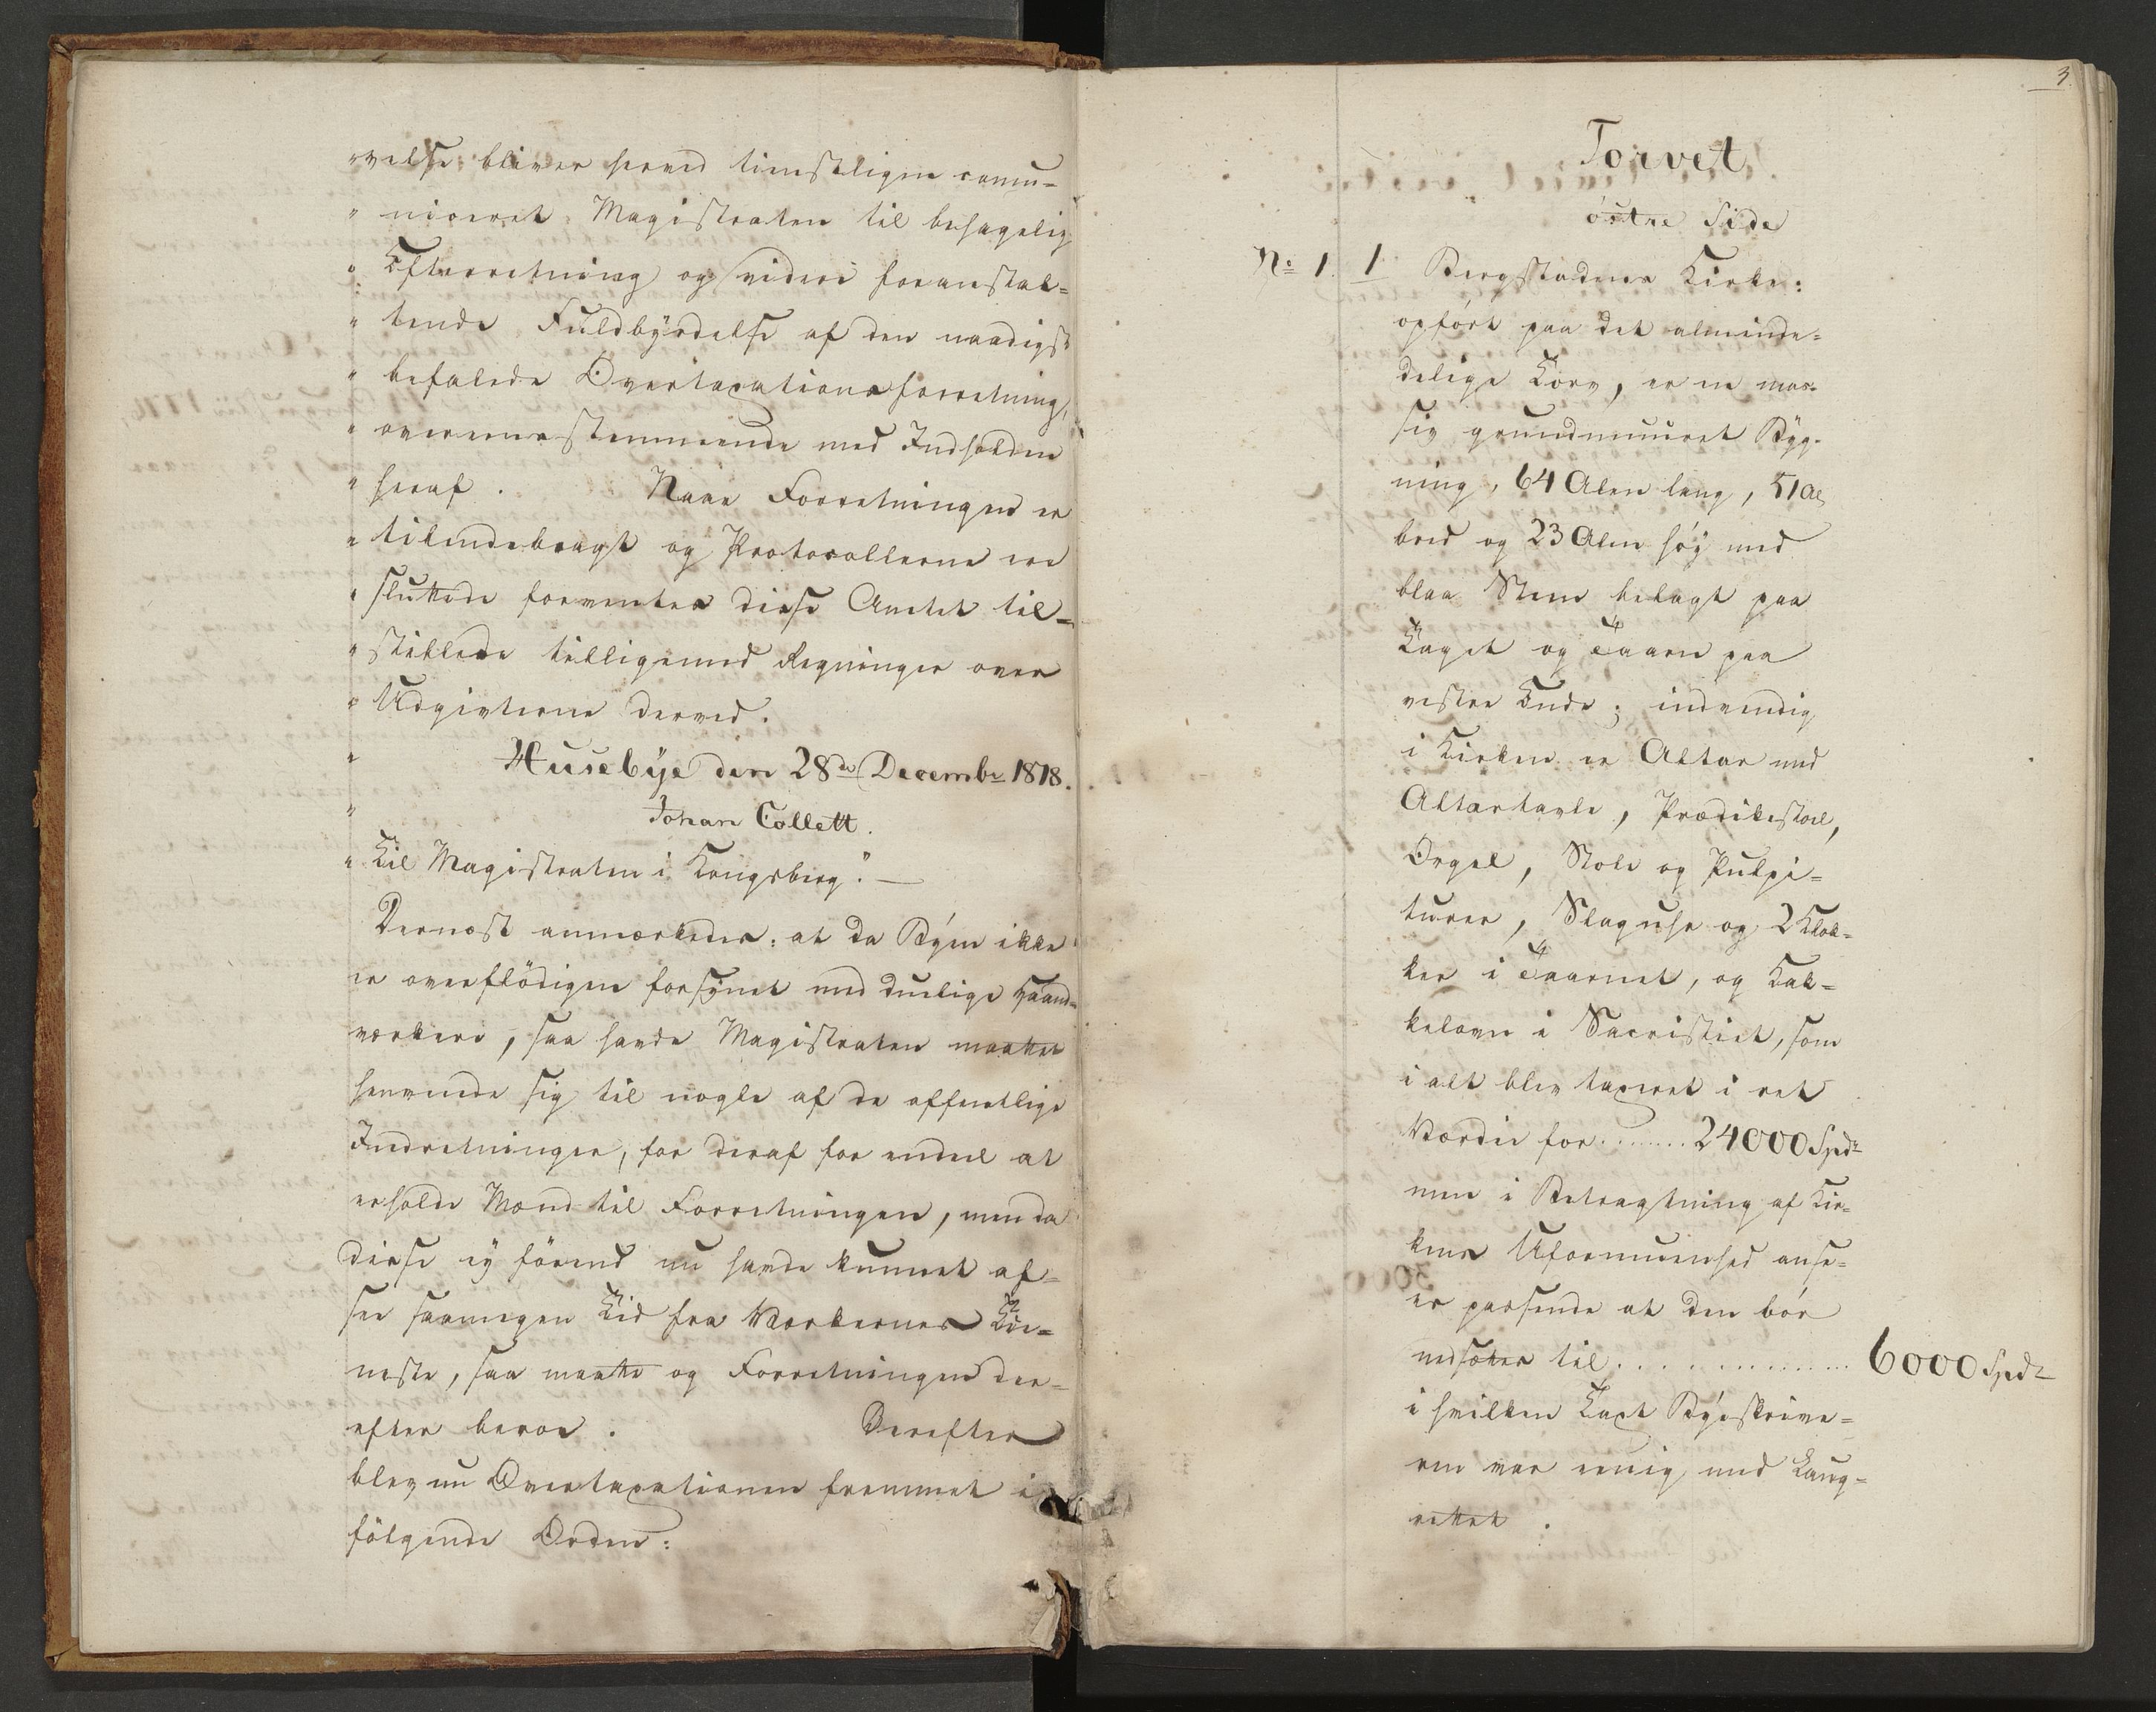 "velse bliver herved tienstligen comu=
" niceret Magistraten til behagelig
" Efterretning og videre foranstal=
" tende Fuldbÿrdelse af den naadigst
" befalede Overtaxationsforretning,
" overeensstemmende med Indholden
" heraf. Naar Forretningen er
" tilendebragt og Protocollerne ere
" sluttede forventes disse Amtet til=
" stillede tilligemed Regninger over
" Udgivterne derved.
" Husebÿe den 28de Decembr 1818.
" Johan Collett.
" Til Magistraten i Kongsberg." —
Dernæst anmærkedes: at da Bÿen ikke
er overflödigen forsÿnet med duelige Haand=
værkere, saa havde Magistraten maattet
henvende sig til nogle af de offentlige
Indretninger, for deraf for endeel at
erholde Mænd til Forretningen, men da
disse eÿ förend nu havde kunnet af=
see saamegen Tid fra Værkernes Tie=
neste, saa maatte og Forretningen der=
efter beroe. Derefter
blev nu Overtaxationen fremmet i
fölgende Orden:
3.
Torvet
östre Side
No 1. 1 Bergstadens Kirke:
opfört paa det alminde=
delige Torv, er en mas=
siv grundmuuret Bÿg=
ning, 64 Alen lang, 51 Al
bred og 23 Alen höÿ med
blaa Steen belagt paa
Taget og Taarn paa
vestre Ende; indvendig
i Kirken er Altar med
Altartavle, Prædikestoel,
Orgel, Stole og Pulpi=
turer, Slaguhr og 2 Klok=
ker i Taarnet, og Kak=
kelovn i Sacristiet, som
i alt blev taxeret i ret
Værdie for........24000 Spdr
men i Betragtning af Kir=
kens Uformuenhed anse=
es passende at den bör
nedsættes til............... 6000 Spdr
i hvilken Taxt Bÿeskrive=
ren var eenig med Laug=
rettet.